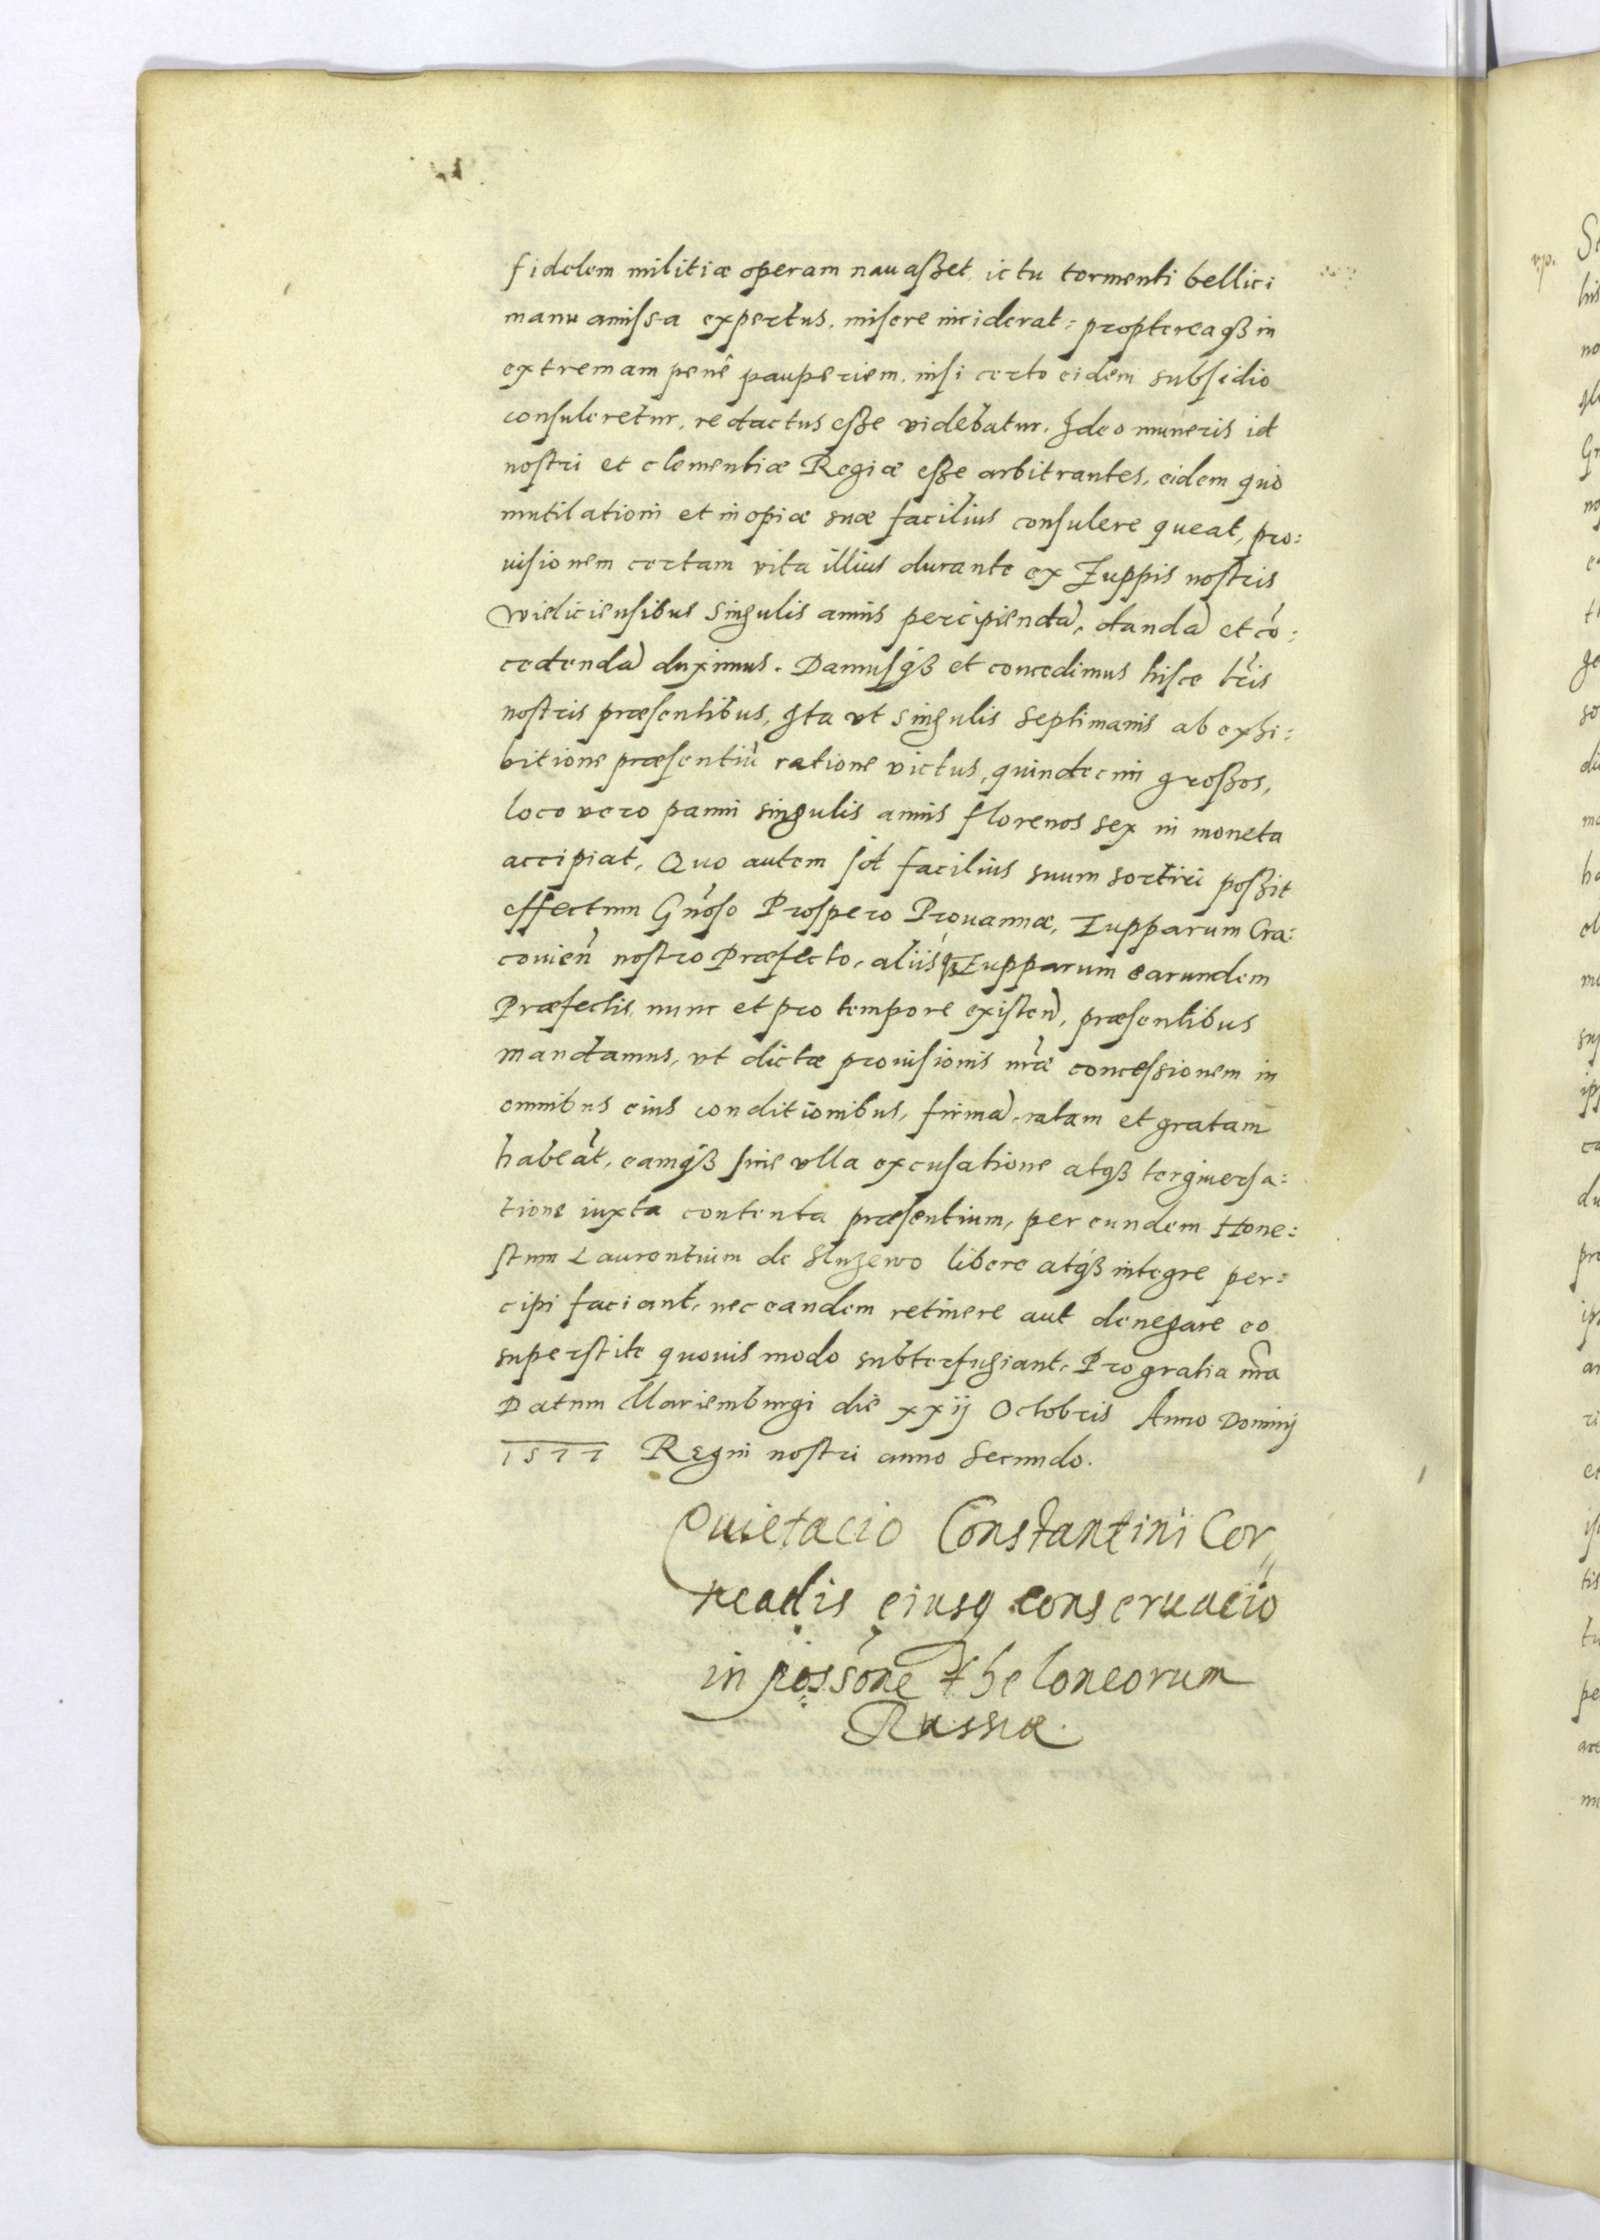 fidelem militiæ operam nauaßet ictu tormenti bellici
manu amissa expertus, misere inciderat: proptereaqß in
extremam penè pauperiem, nisi certo eidem subsidio
consuleretur, redactus eße videbatur. Ideo muneris id
nostri et clementiæ Regiæ eße arbitrantes, eidem quò
mutilationi et inopiæ suæ facilius consulere queat, pro:
uisionem certam vita illius durante ex Zuppis nostris
Wieliciensibus singulis annis percipiendã, dandã et cõ:
cedendã duximus. Damusqß et concedimus hisce lris
nostris præsentibus, Ita vt singulis septimanis ab exhi:
bitione præsentiũ ratione victus, quindecim großos,
loco vero panni singulis annis florenos sex in moneta
accipiat, Quo autem id facilius suum sortiri poßit
effectum Gnoso Prospero Prouannæ, Zupparum Cra:
couien nostro Præfecto, aliisqß Zupparum earundem
Præfectis nunc et pro tempore existen, præsentibus
mandamus, vt dictæ prouisionis nræ concessionem in
omnibus eius conditionibus, firmã, ratam et gratam
habeãt, eamqß sine vlla excusatione atqß tergiuersa:
tione iuxta contenta præsentium, per eundem Hone:
stum Laurentium de Sluzewo libere atqß integre per:
cipi faciant, nec eandem retinere aut denegare eo
superstite quouis modo subterfugiant, Pro gratia nra
Datum Mariemburgi die xxij Octobris Anno Dominj
1577 Regni nostri anno Secundo.
Quietacio Constantini Cor„
neadis eiusq conseruacio
in possone theloneorum
Russiæ.